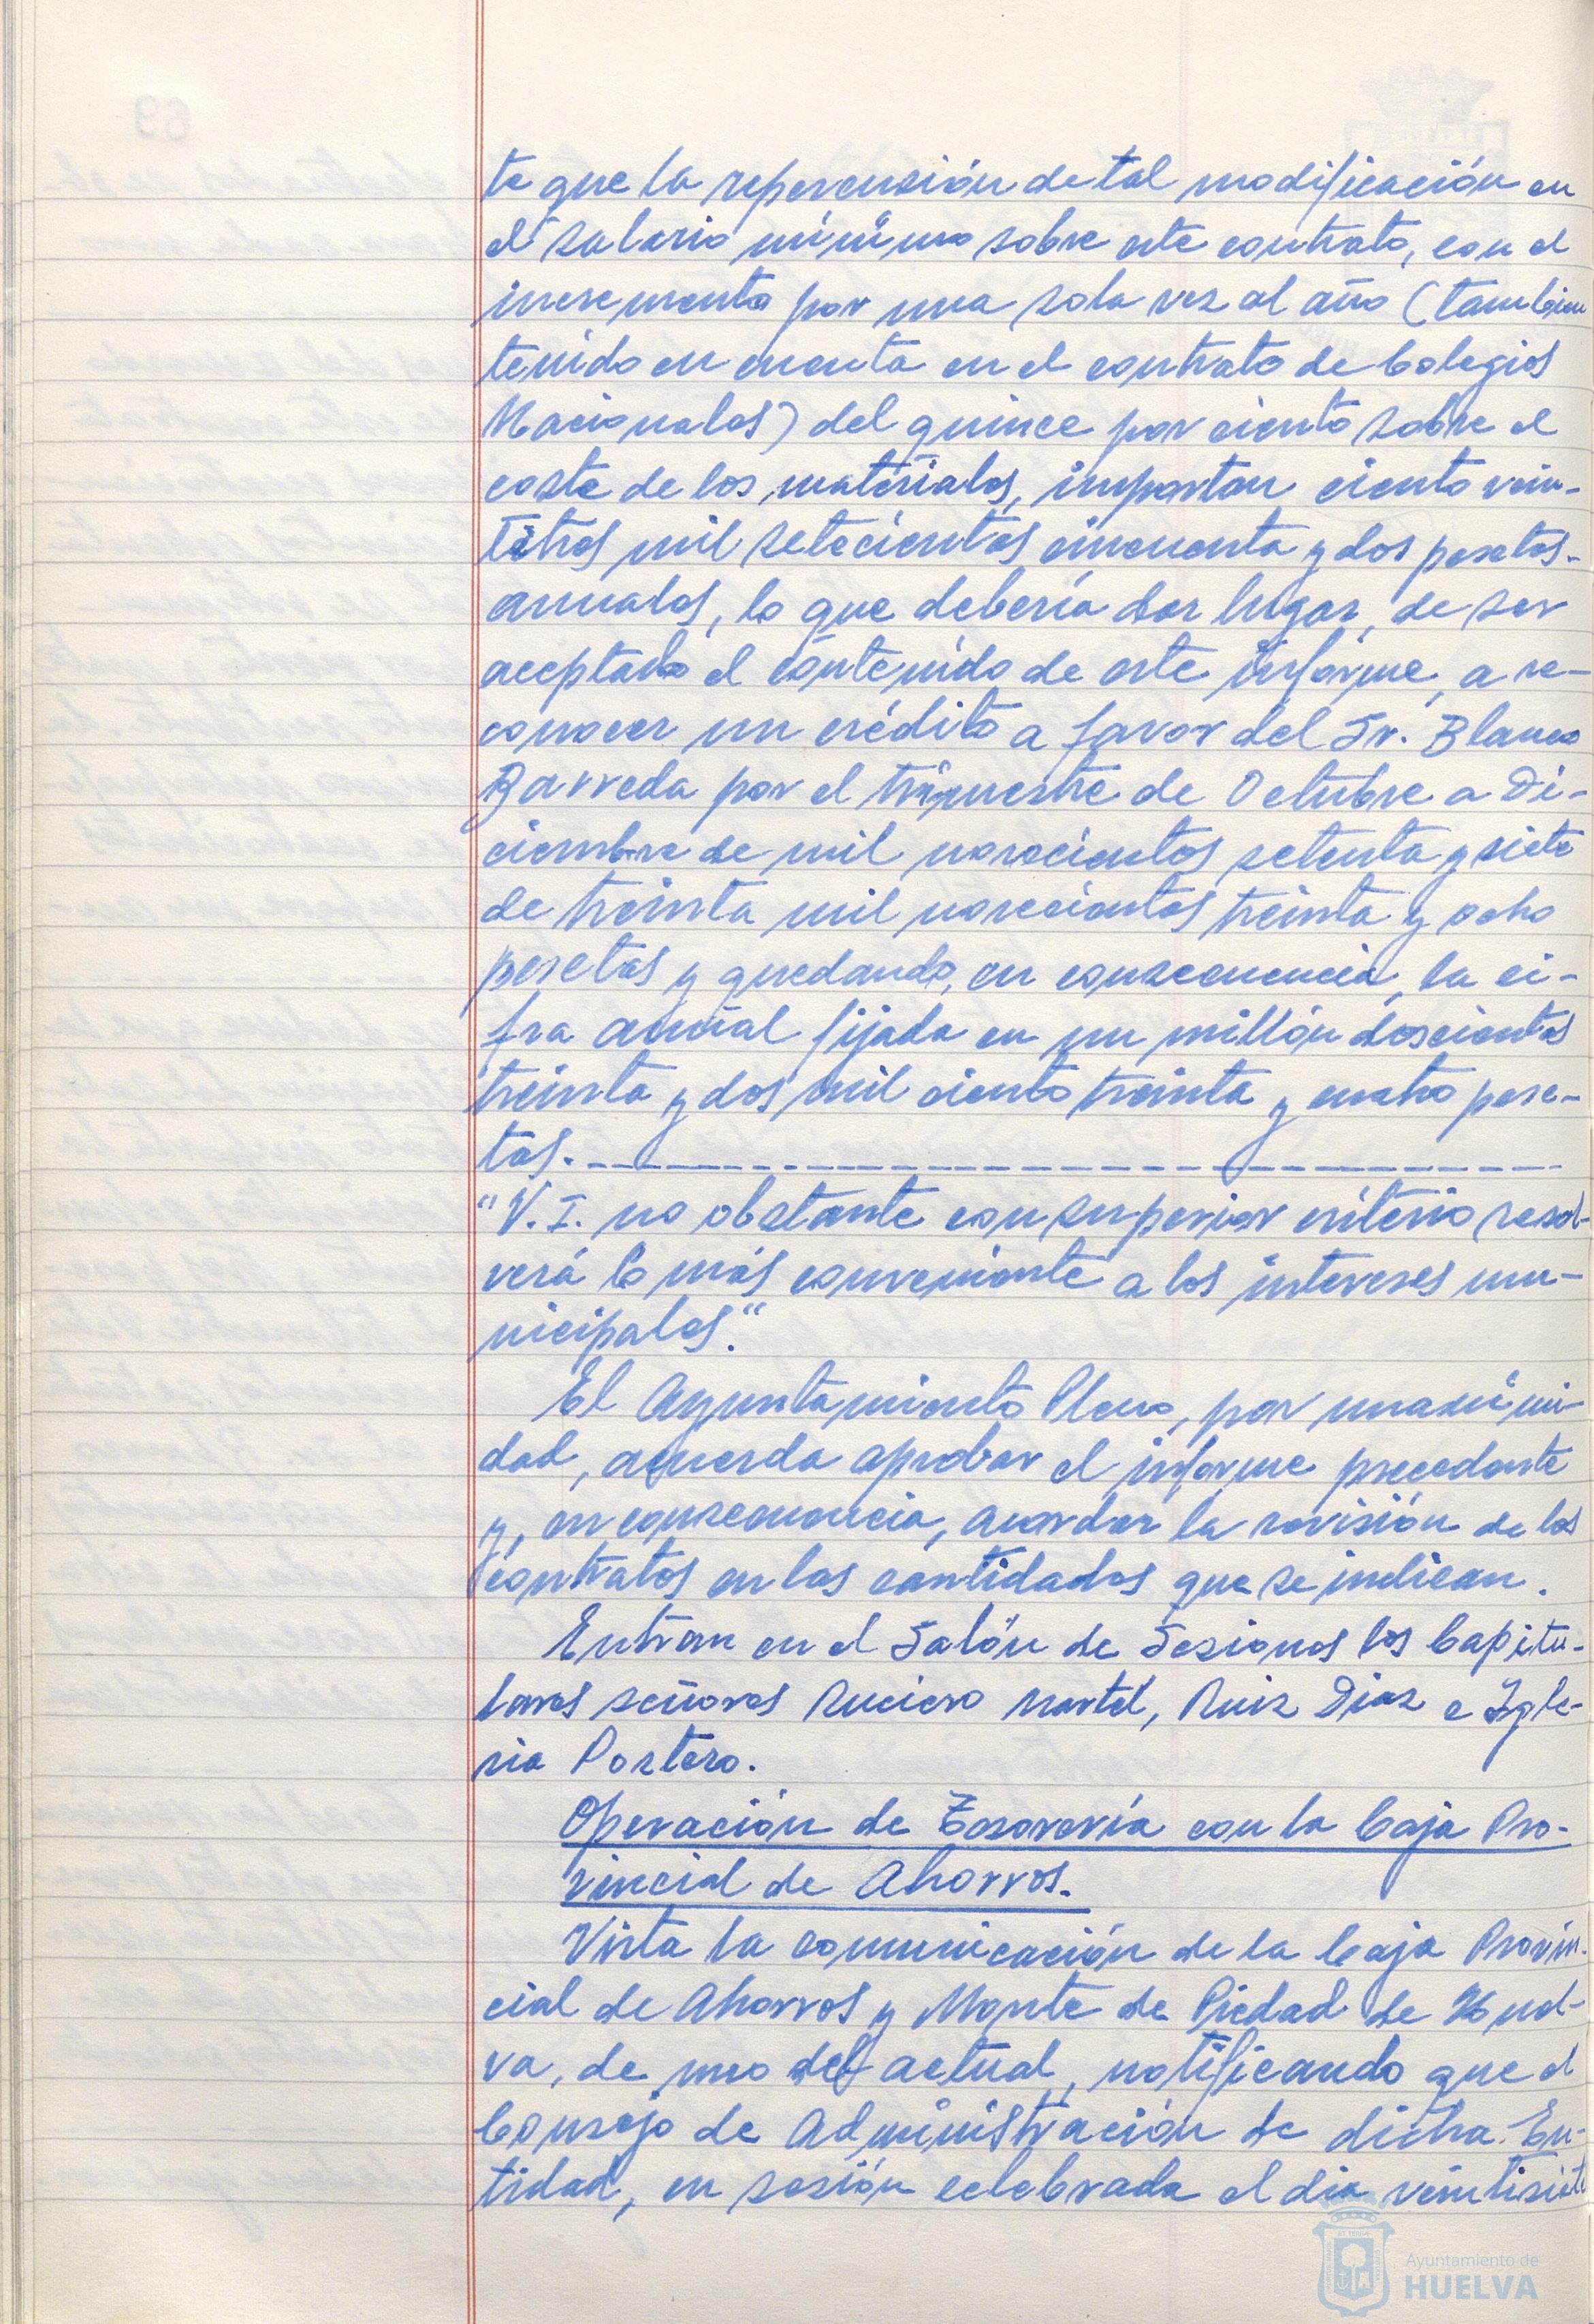 te que la repercusión de tal modificación en
el salario mínimo sobre este contrato, con el
incremento por una sola vez al año (también
tenido en cuenta en el contrato de Colegios
Nacionales) del quince por ciento sobre el
coste de los materiales, importan ciento vein-
titres mil setecientas cincuenta y dos pesetas.
anuales, lo que debería dar lugar, de ser
aceptado el contenido de este informe, a re-
conocer un crédito a favor del Sr. Blanco
Barreda por el trimestre de Octubre a Di-
ciembre de mil novecientos setenta y siete
de treinta mil novecientas treinta y ocho
pesetas y quedando, en consecuencia, la ci-
fra anual fijada en un millón doscientas
treinta y dos mil ciento treinta y cuatro pese-
tas.
"V.I. no obstante con superior criterio resol-
verá lo más conveniente a los intereses mu-
nicipales."
El Ayuntamiento Pleno, por unanimi-
dad, acuerda aprobar el informe precedente
y, en consecuencia, acordar la revisión de los
contratos en las cantidades que se indican.
Entran en el Salón de Sesiones los Capitu-
lares señores Suciero Martel, Ruiz Diaz e Igle-
sia Postero.
Operación de Tesorería con la Caja Pro-
vincial de Ahorros.
Vista la comunicación de la Caja Provin-
cial de Ahorros y Monte de Piedad de Huel-
va, de uno del actual, notificando que el
Consejo de Administración de dicha En-
tidad, en sesión celebrada el dia veintisiete
Ayuntamiento de
HUELVA